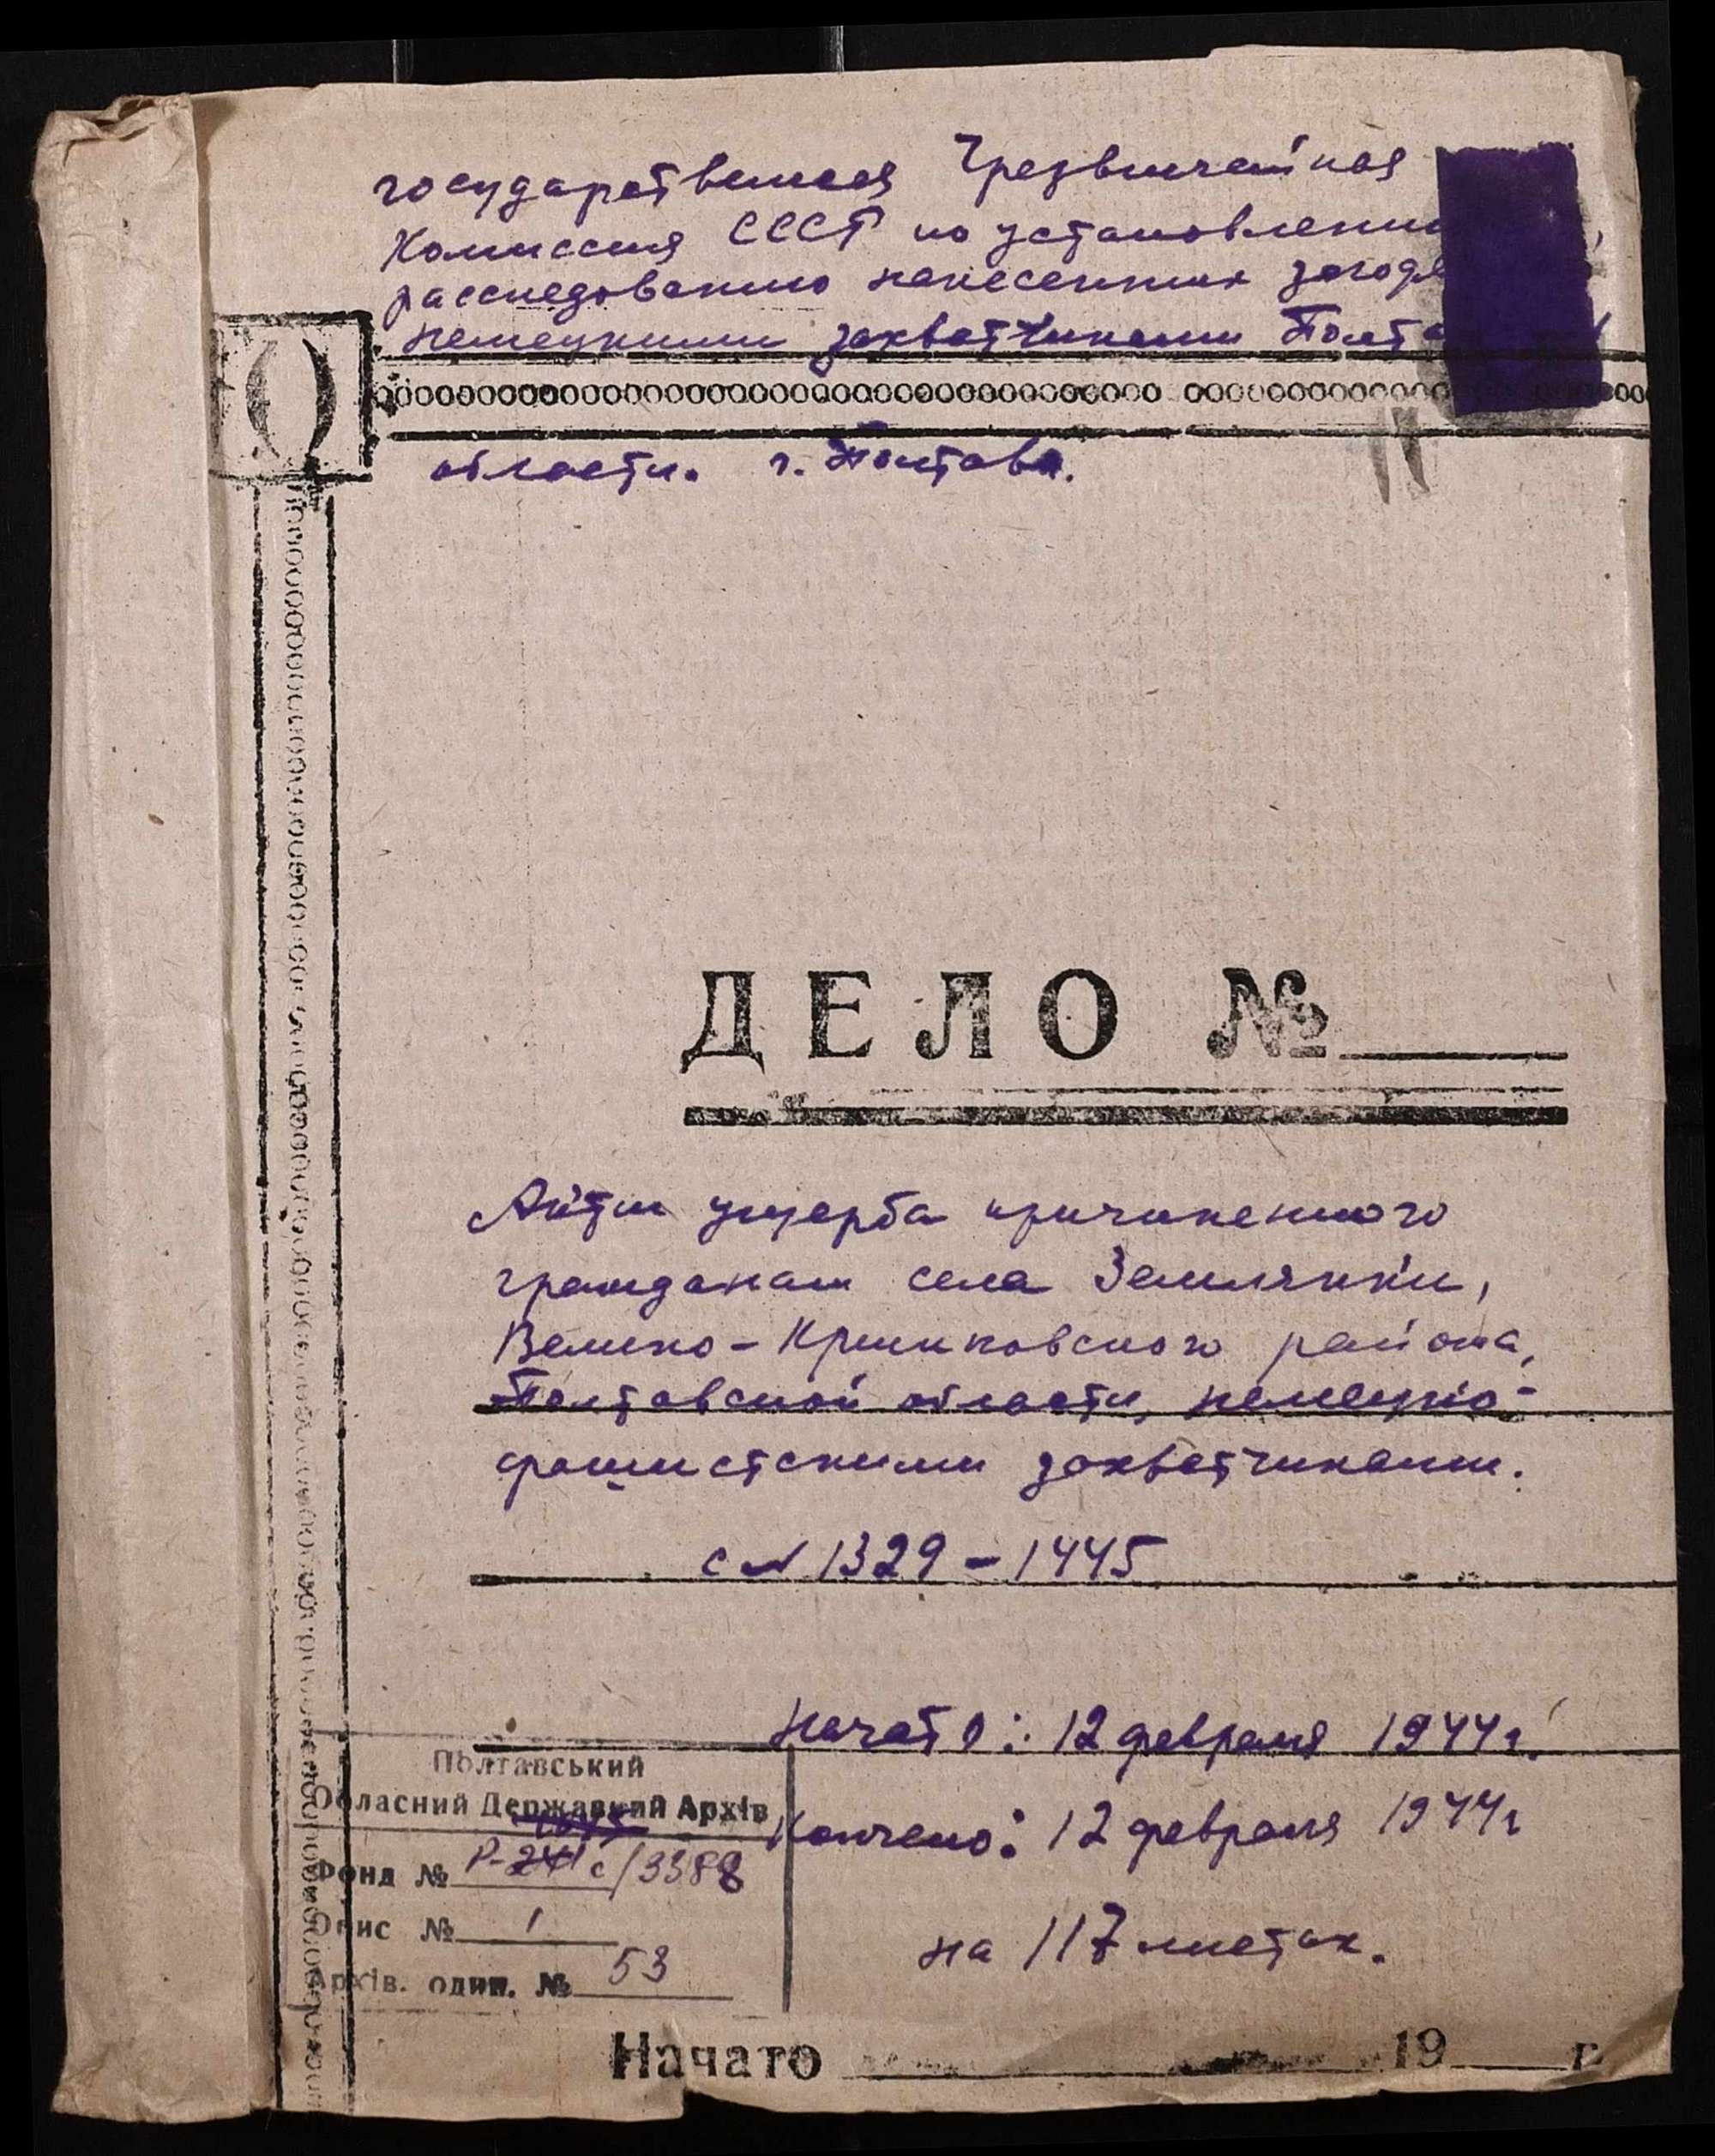 государственная Чрезвычайная
Комиссия СССР по установлению
расследованию нанесенных
немецкими захватчиками
области. г. Полтава.
ДЕЛО №
Акты ущерба причиненного
гражданам села Землянки,
Велико-Крынковского района,
Полтавской области, немецко-
фашистскими захватчиками.
с N 1329 - 1445
Начато: 12 февраля 1944 г.
Полтавський
Обласний Державний Архів
Кончено: 12 февраля 1944 г
Фонд № Р- с/3388
Опис № 1
на 117 листах.
Архів. один. № 53
Начато 19 г.